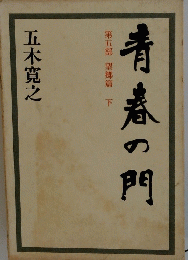 青春の門
第五部 望郷篇 下
五木寛之